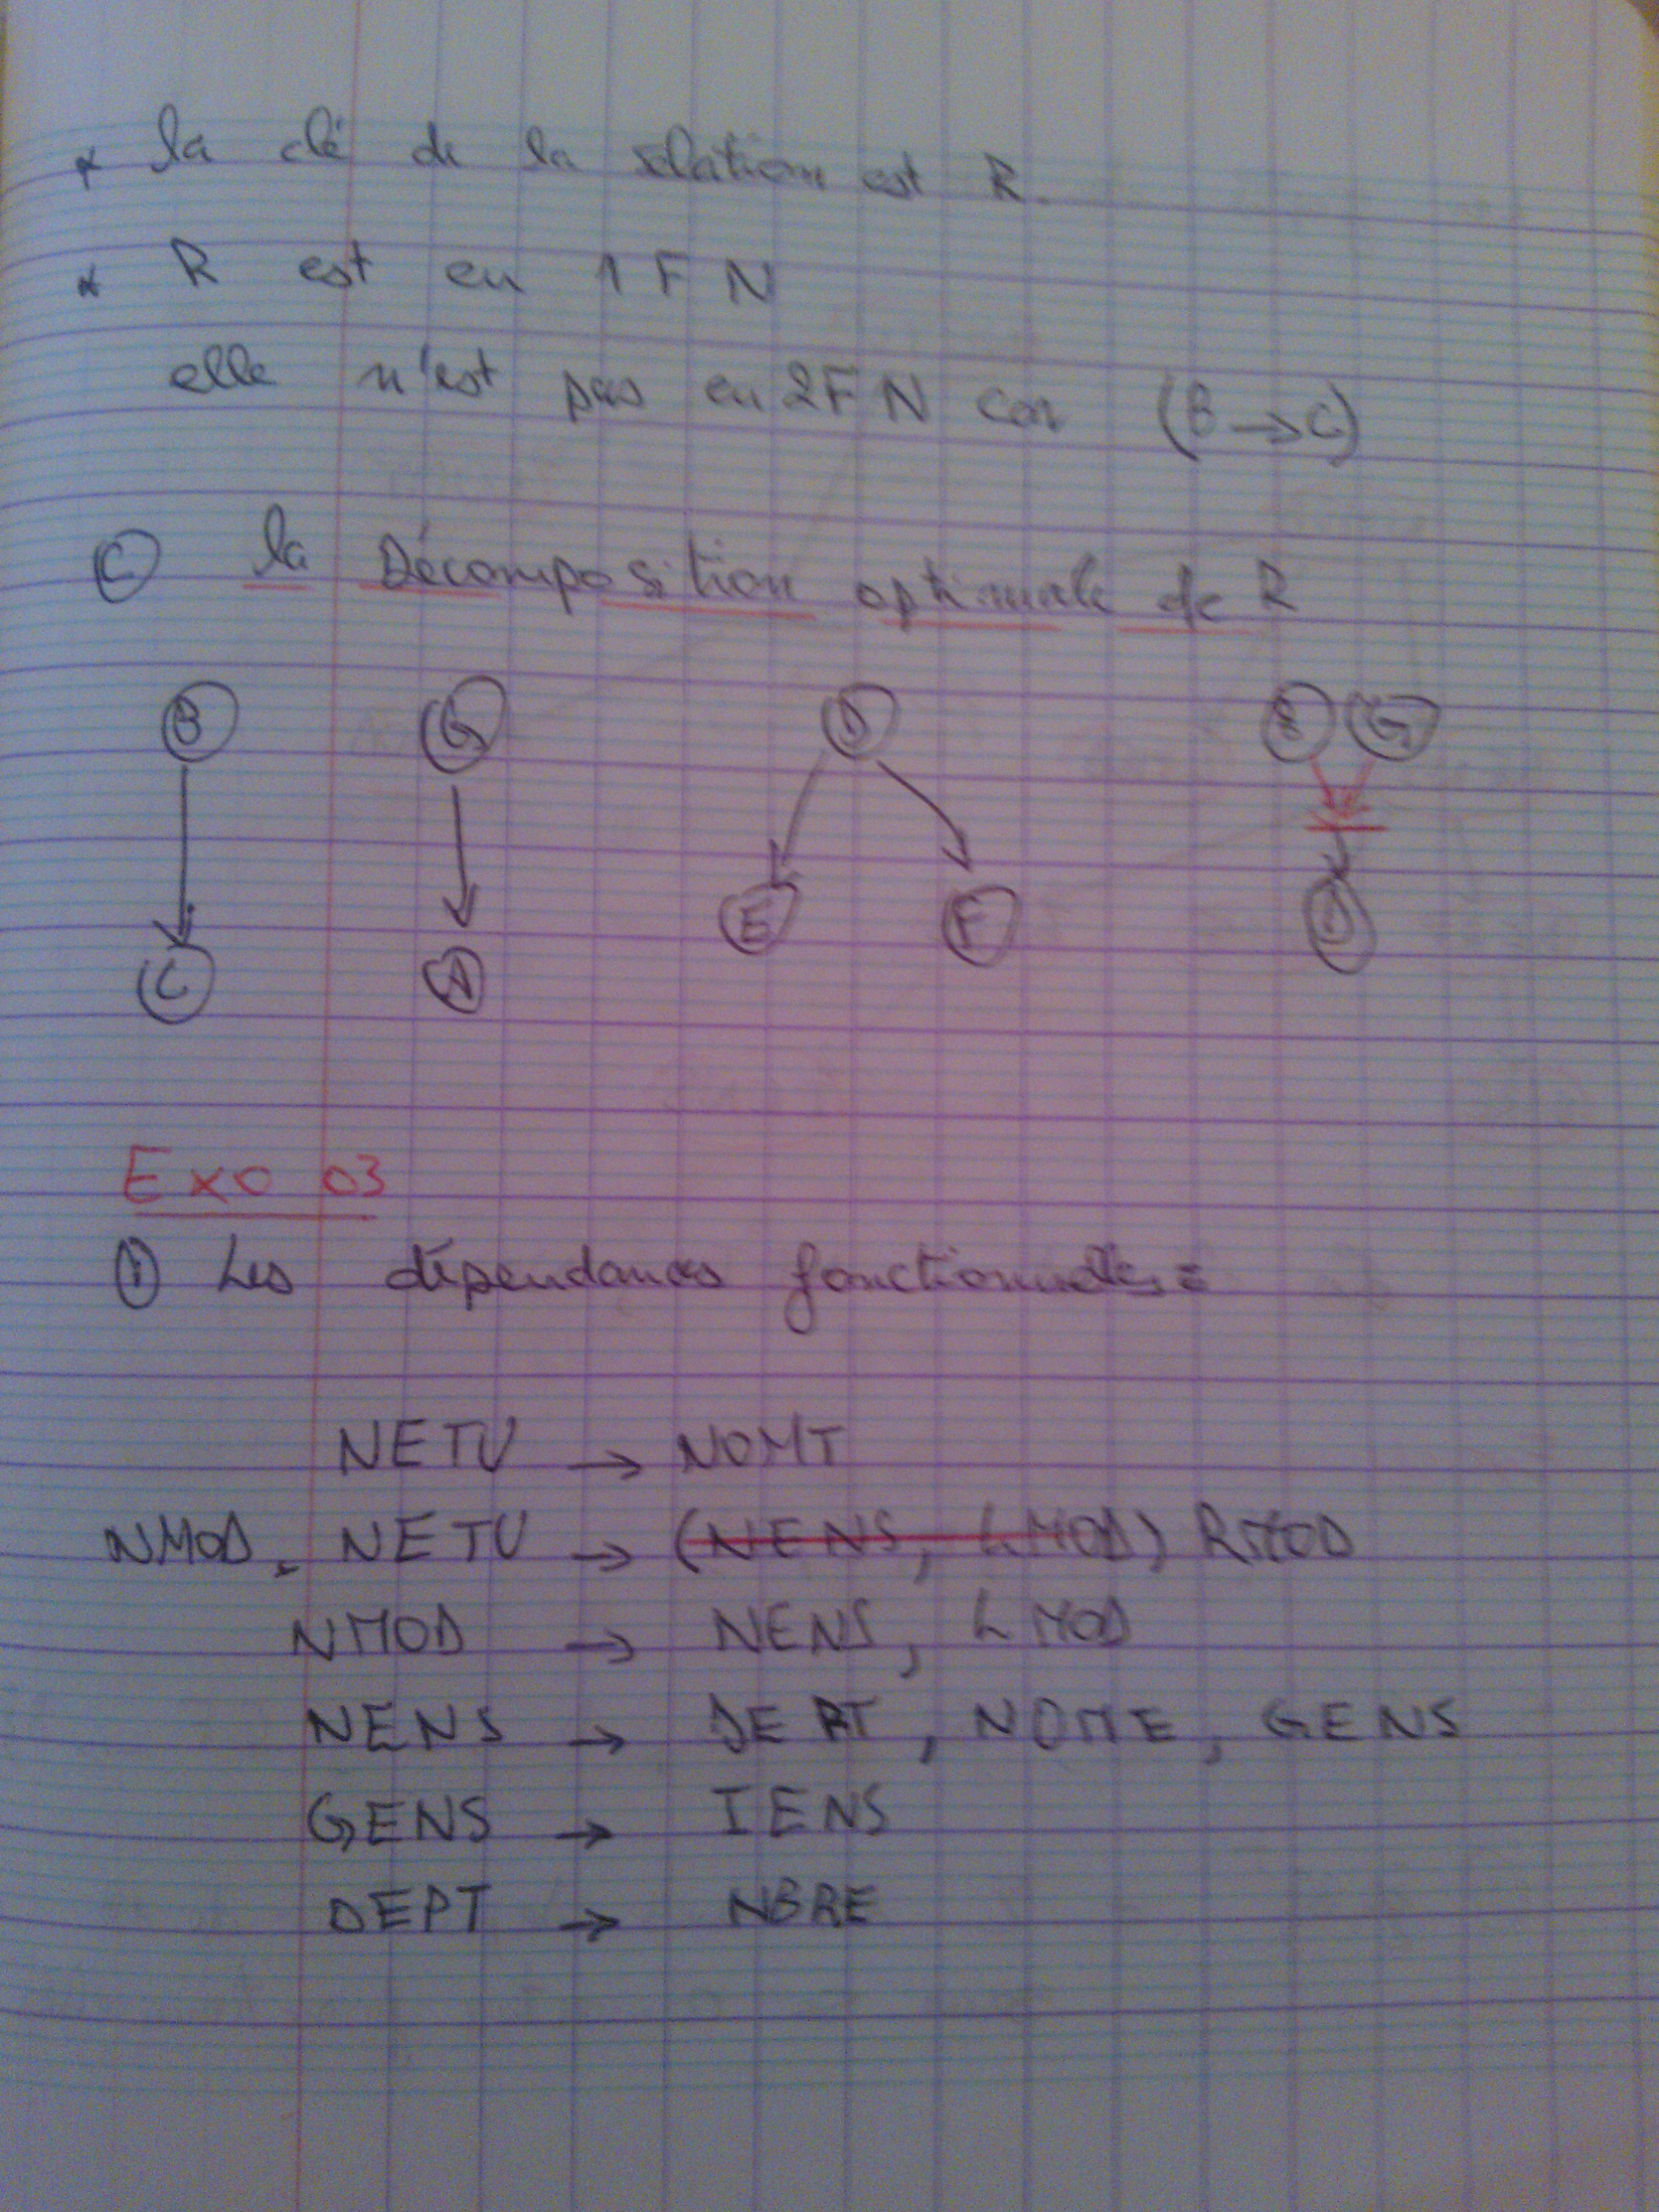 * la clé de la relation est R.
* R est en 1FN
elle n'est pas en 2FN car (B → C)
C la Décomposition optimale de R
B G D B G
E F D
C A
Exo 03
1 Les dépendances fonctionnelles =
NETU → NOMT
NMOD, NETU → (NENS, LMOD) RMOD
NMOD → NENS, LMOD
NENS → DEPT, NOME, GENS
GENS → IENS
DEPT → NBRE